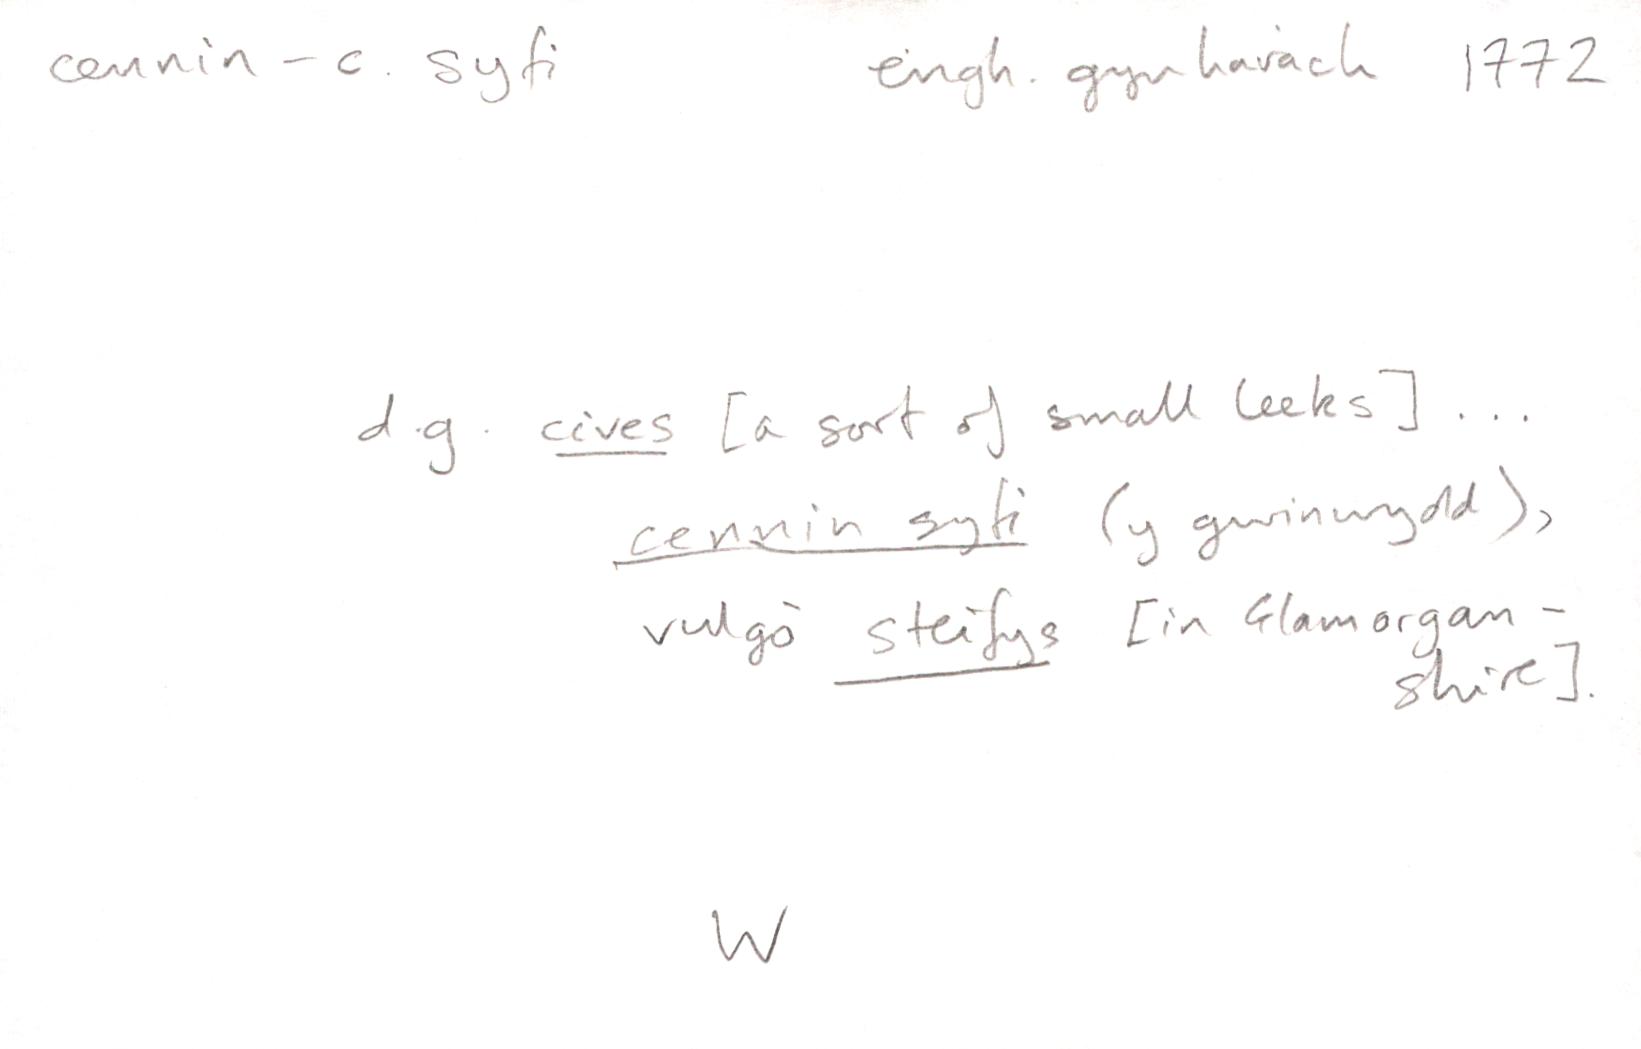 cennin – c. syfi engh. gynharach 1772
d.g. cives [a sort of small leeks] ...
cennin syfi (y gwinwydd),
vulgò steifys [in Glamorgan-
shire].
W